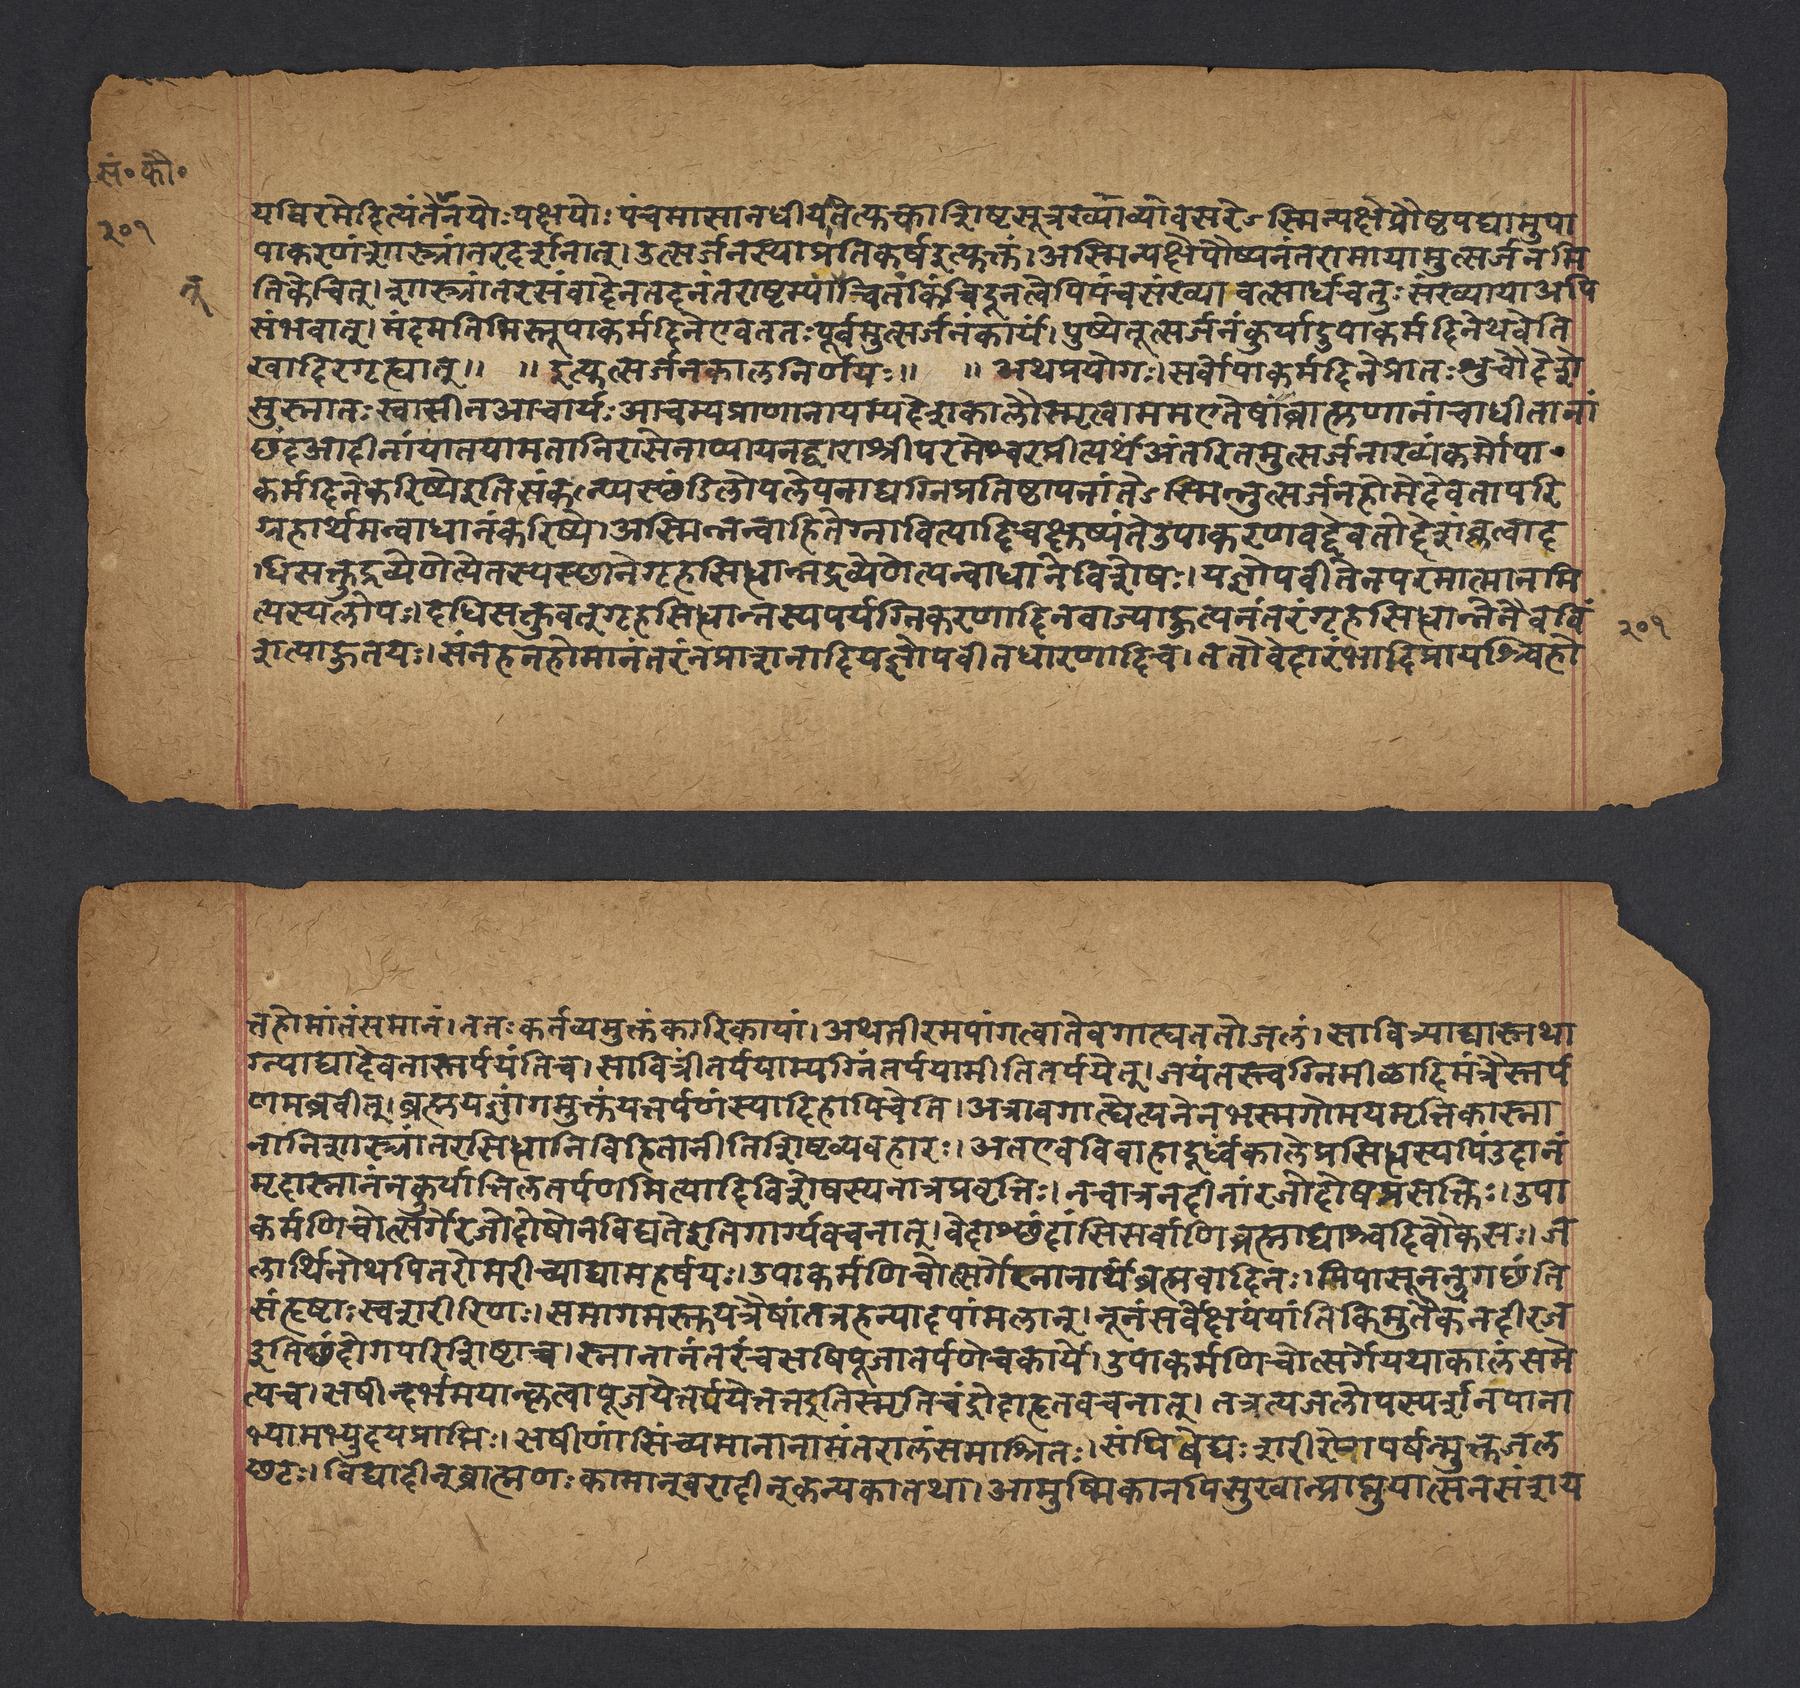 सं॰ कौ॰
२०१
यद्विरमेदित्यंतेनयोःपक्षयोः पंचमासानधीयतेत्युत्काशिष्टसूत्रव्याख्यावसरेऽस्मिन्पक्षेप्रौष्ठपद्यामुपा
पाकरणंशास्त्रांतरदर्शनात्। उत्सर्जनस्याप्रतिकर्षइत्युक्तं। अस्मिन्पक्षेपौष्यनंतरामायामुत्सर्जनमि
तिकेचित्। शास्त्रांतरसंवादेनतदनंतराष्टम्यांन्वितंकिंचिदूनत्वेपिपंचसंख्या वत्सार्धचतुःसंख्यायाअपि
संभवात्। मंदमतिभिस्तूपाकर्मदिनेएवततःपूर्वमुत्सर्जनंकार्यं। पुष्येतूत्सर्जनंकुर्यादुपाकर्मदिनेथवेति
खादिरगृह्यात्॥ ॥ इत्युत्सर्जनकालनिर्णयः॥ ॥ अथप्रयोगः। सर्वोपाकर्मदिनेप्रातःशुचौदेशे
सुस्नातःस्वासीनआचार्यःआचम्यप्राणानायम्यदेशकालौस्मृत्वाममएतेषांब्राह्मणानांचाधीतानां
छंदआदीनांयातयामतानिरासेनाप्यायनद्वाराश्रीपरमेश्वरप्रीत्यर्थंअंतरितमुत्सर्जनाख्यंकर्मोपा॰
कर्मदिनेकरिष्येइतिसंकल्प्यस्थंडिलोपलेपनाद्यग्निप्रतिष्ठापनांतेऽस्मिन्नुत्सर्जनहोमेदेवतापरि
ग्रहार्थमन्वाधानंकरिष्ये। अस्मिन्नन्वाहितेग्नावित्यादिचक्षुष्यंतेउपाकरणवद्देवतोद्देशंकृत्वाद
धिसक्तुद्रव्येणेत्येतस्यस्थानेगृहसिध्दान्नद्रव्येणेत्यन्वाधानेविशेषः। यज्ञोपवीतेनपरमात्मानमि
त्यस्यलोपः। दधिसक्तुवत्गृहसिध्दान्नस्यपर्यग्निकरणादिनवाज्याहुत्यनंतरंगृहसिध्दान्नेनैवविं
२०१
शत्याहुतयः। संनहनहोमानंतरंनप्राशनादियज्ञोपवीतधारणादिच। ततोवेदारंभादिप्रायश्चिहो
त्तहोमांतंसमानं। ततःकर्तव्यमुक्तंकारिकायां। अथतीरमपांगत्वातेवगाह्यततोजलं। सावित्र्याद्यास्तथा
ग्न्याद्यादेवतास्तर्पयंतिच। सावित्रींतर्पयाम्यग्निंतर्पयामीतितर्पयेत्। जयंतस्त्वग्निमीळादिमंत्रैस्तर्प
णमब्रवीत्। ब्रह्मयज्ञांगमुक्तंयत्तर्पणंस्यादिहापिचेति। अत्रावगाह्येत्यनेनभस्मगोमयमृत्तिकास्ना
नानिशास्त्रांतरसिध्दानिविहितानीतिशिष्टव्यवहारः। अतएवविवाहादूर्ध्वंकालेप्रसिध्दस्यपिंडदानं
मृदास्नानंनकुर्यात्तिलतर्पणमित्यादिविशेषस्यनात्रप्रवृत्तिः। नचात्रनदीनांरजोदोषप्रसक्तिः। उपा
कर्मणिचोत्सर्गेरजोदोषोनविद्यतेइतिगार्ग्यवचनात्। वेदाश्छंदांसिसर्वाणिब्रह्माद्याश्चदिवौकसः। ज
लार्थिनोथपितरोमरीच्याद्यामहर्षयः। उपाकर्मणिचोत्सर्गेस्नानार्थंब्रह्मवादिनः। पिपासूननुगछंति
संहृष्टाःस्वशरीरिणः। समागमस्तुयत्रैषांतत्रहन्यादपांमलान्। नूनंसर्वेक्षयंयांतिकिमुतैकनदीरज
इतिछंदोगपरिशिष्टाच्च। स्नानानंतरंचऋषिपूजातर्पणेचकार्ये। उपाकर्मणिचोत्सर्गेयथाकालंसमे
त्यच। ऋषीन्दर्भमयान्कृत्वापूजयेत्तर्पयेत्ततइतिस्मृतिचंद्रोदाहृतवचनात्। तत्रत्यजलोपस्पर्शनपाना
भ्यामभ्युदयप्राप्तिः। ऋषीणांसिंच्यमानानामंतरालंसमाश्रितः। संपिबेद्यःशरीरेणपर्षन्मुक्तजल
छटाः। विद्यादीन्ब्राह्मणःकामान्वरादीन्कन्यकातथा। आमुष्मिकानपिसुखान्प्राप्नुयात्सनसंशय